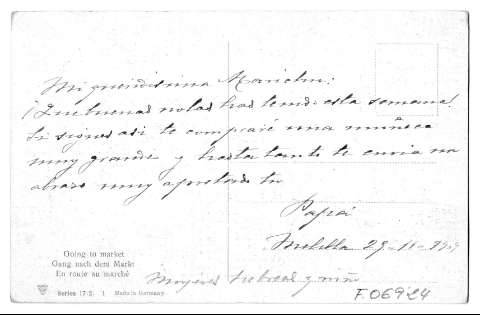 Mi queridisima Marichu:
¡Que buenas notas has tenido esta semana!
Si sigues asi te compraré una muñeca
muy grande y hasta tanto te envia un
abrazo muy apretado tu
Papá
Melilla 29-11-
Going to market
Gang nach dem Markt
En route au marché
Series 172. 1 Made in Germany.
Mujeres hebreas y niño
F.06924